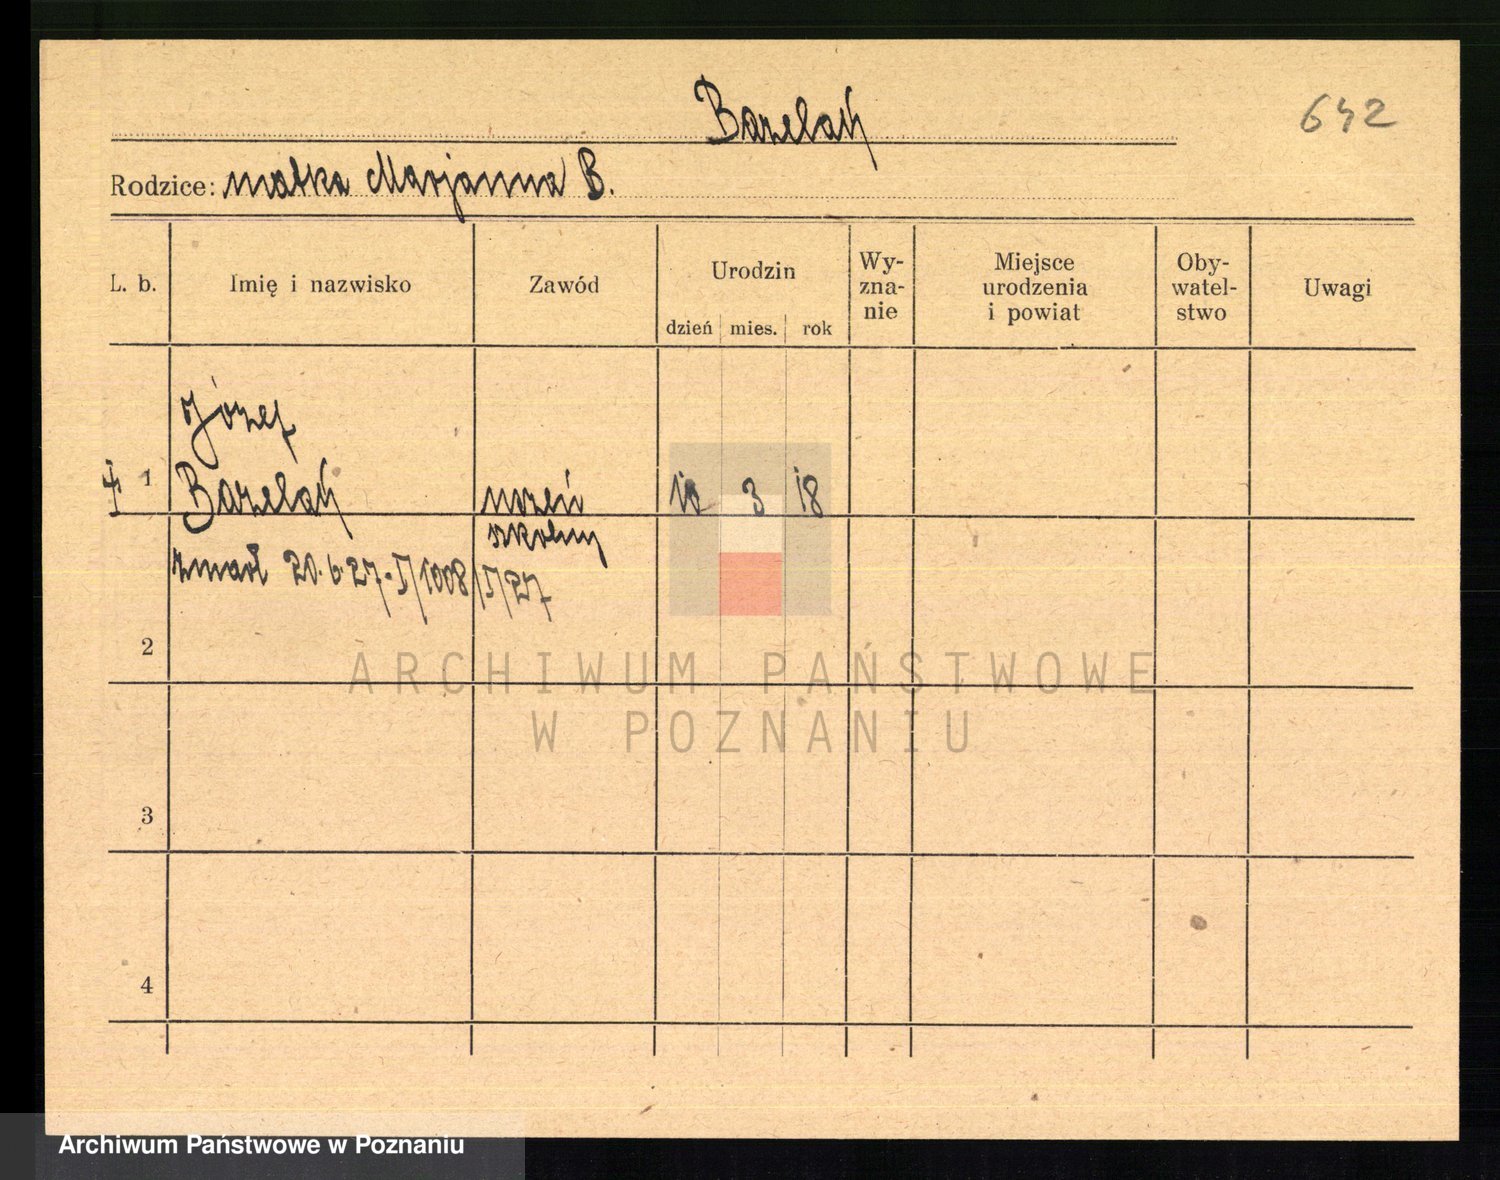 Bazelak
642
Rodzice: matka Marjanna B.
L. b.
Imię i nazwisko
Zawód
Urodzin
dzień mies. rok
Wy-
zna-
nie
Miejsce
urodzenia
i powiat
Oby-
watel-
stwo
Uwagi
Józef
1 Bazelak
uczeń
szkolny
3 18
zmarł 20.6.27. I/1008/I/27
2
3
4
ARCHIWUM PAŃSTWOWE
W POZNANIU
Archiwum Państwowe w Poznaniu